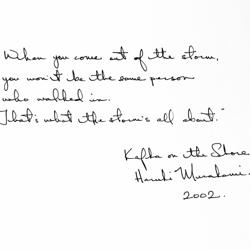 When you come out of the storm,
you won't be the same person
who walked in.
That's what the storm's all about."
Kafka on the Shore
Haruki Murakami.
2002.